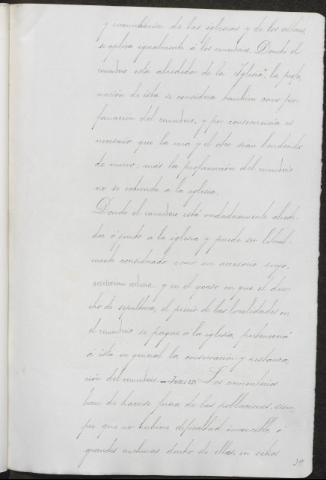 y reconciliación de las iglesias y de los altares,
se aplica igualmente á los cementerios. Donde el
cementerio está alrededor de la Iglesia, la profa-
nación de ésta se considera tambien como pro-
fanación del cementerio, y por consecuencia es
necesario que la una y el otro sean bendecidos
de nuevo; mas la profanación del cementerio
no se extiende á la iglesia.
Donde el cementerio está verdaderamente alrede-
dor ó junto á la iglesia y puede ser literal-
mente considerado como un accesorio suyo,
y en el que el dere-
cho de sepultura, el precio de las localidades en
el cementerio se pague á la iglesia, pertenecerá
á ésta en general la conservación y restaura-
ción del cementerio. Los cementerios
han de hacerse fuera de las poblaciones, siem-
pre que no hubiere dificultad invencible, ó
grandes anchuras dentro de ellas, en sitios